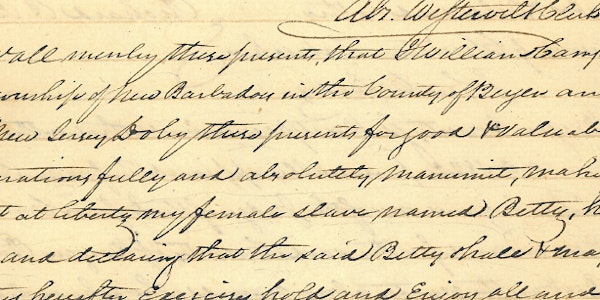 Abr. Westervelt Clerk
all men by these presents, that I William
township of New Barbadoes in the County of Bergen an
New Jersey Do by these presents for good & Valuab
erations fully and absolutely, manumit, make
t at liberty my female slave named Betty, h
and declaring that the said Betty shall & may
hereafter Exercise, hold and Enjoy all and